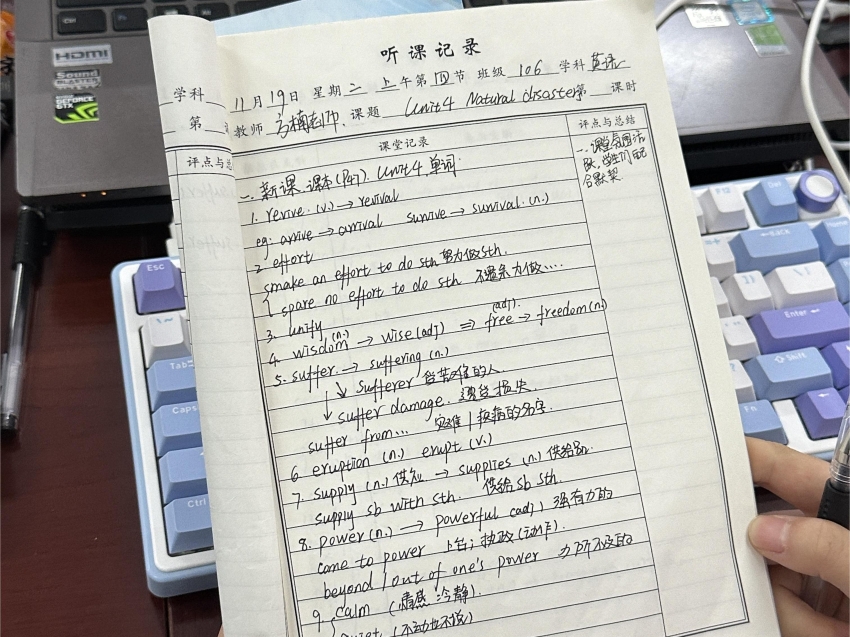 Ctrl
HDMI
Sound
BLASTER
GEFORCE
GTX
学科
第
评点与总
听课记录
11月19日 星期二 上午第四节 班级 106 学科 英语
教师 课题 Unit 4 Natural disasters 第 课时
课堂记录
评点与总结
一、新课 课本(P97). Unit 4 单词.
1. revive. (v.) → revival
eg: arrive → arrival survive → survival. (n.)
2 effort
make an effort to do sth 努力做sth.
spare no effort to do sth 不遗余力做....
3. unify
4. wisdom (n.) → wise (adj) ⇒ free (adj). → freedom (n.)
5. suffer. → suffering (n.)
↘ sufferer 受苦难的人
↓ suffer damage. 遭受损失
suffer from... 灾难/疾病的名字.
6 eruption (n.) erupt (v.)
7. supply (n.) 供应 → supplies (n.) 供给品.
supply sb with sth. 供给sb sth.
8. power (n.) → powerful (adj.) 强有力的
come to power 上台; 执政 (动作).
beyond / out of one's power 力所不及的
9. calm (情感 冷静).
quiet (不动也不说)
一、课堂氛围活
跃, 学生们配
合默契.
Esc
Tab
Caps
Ctrl
F12
Del
Back
Enter
Shift
Fn